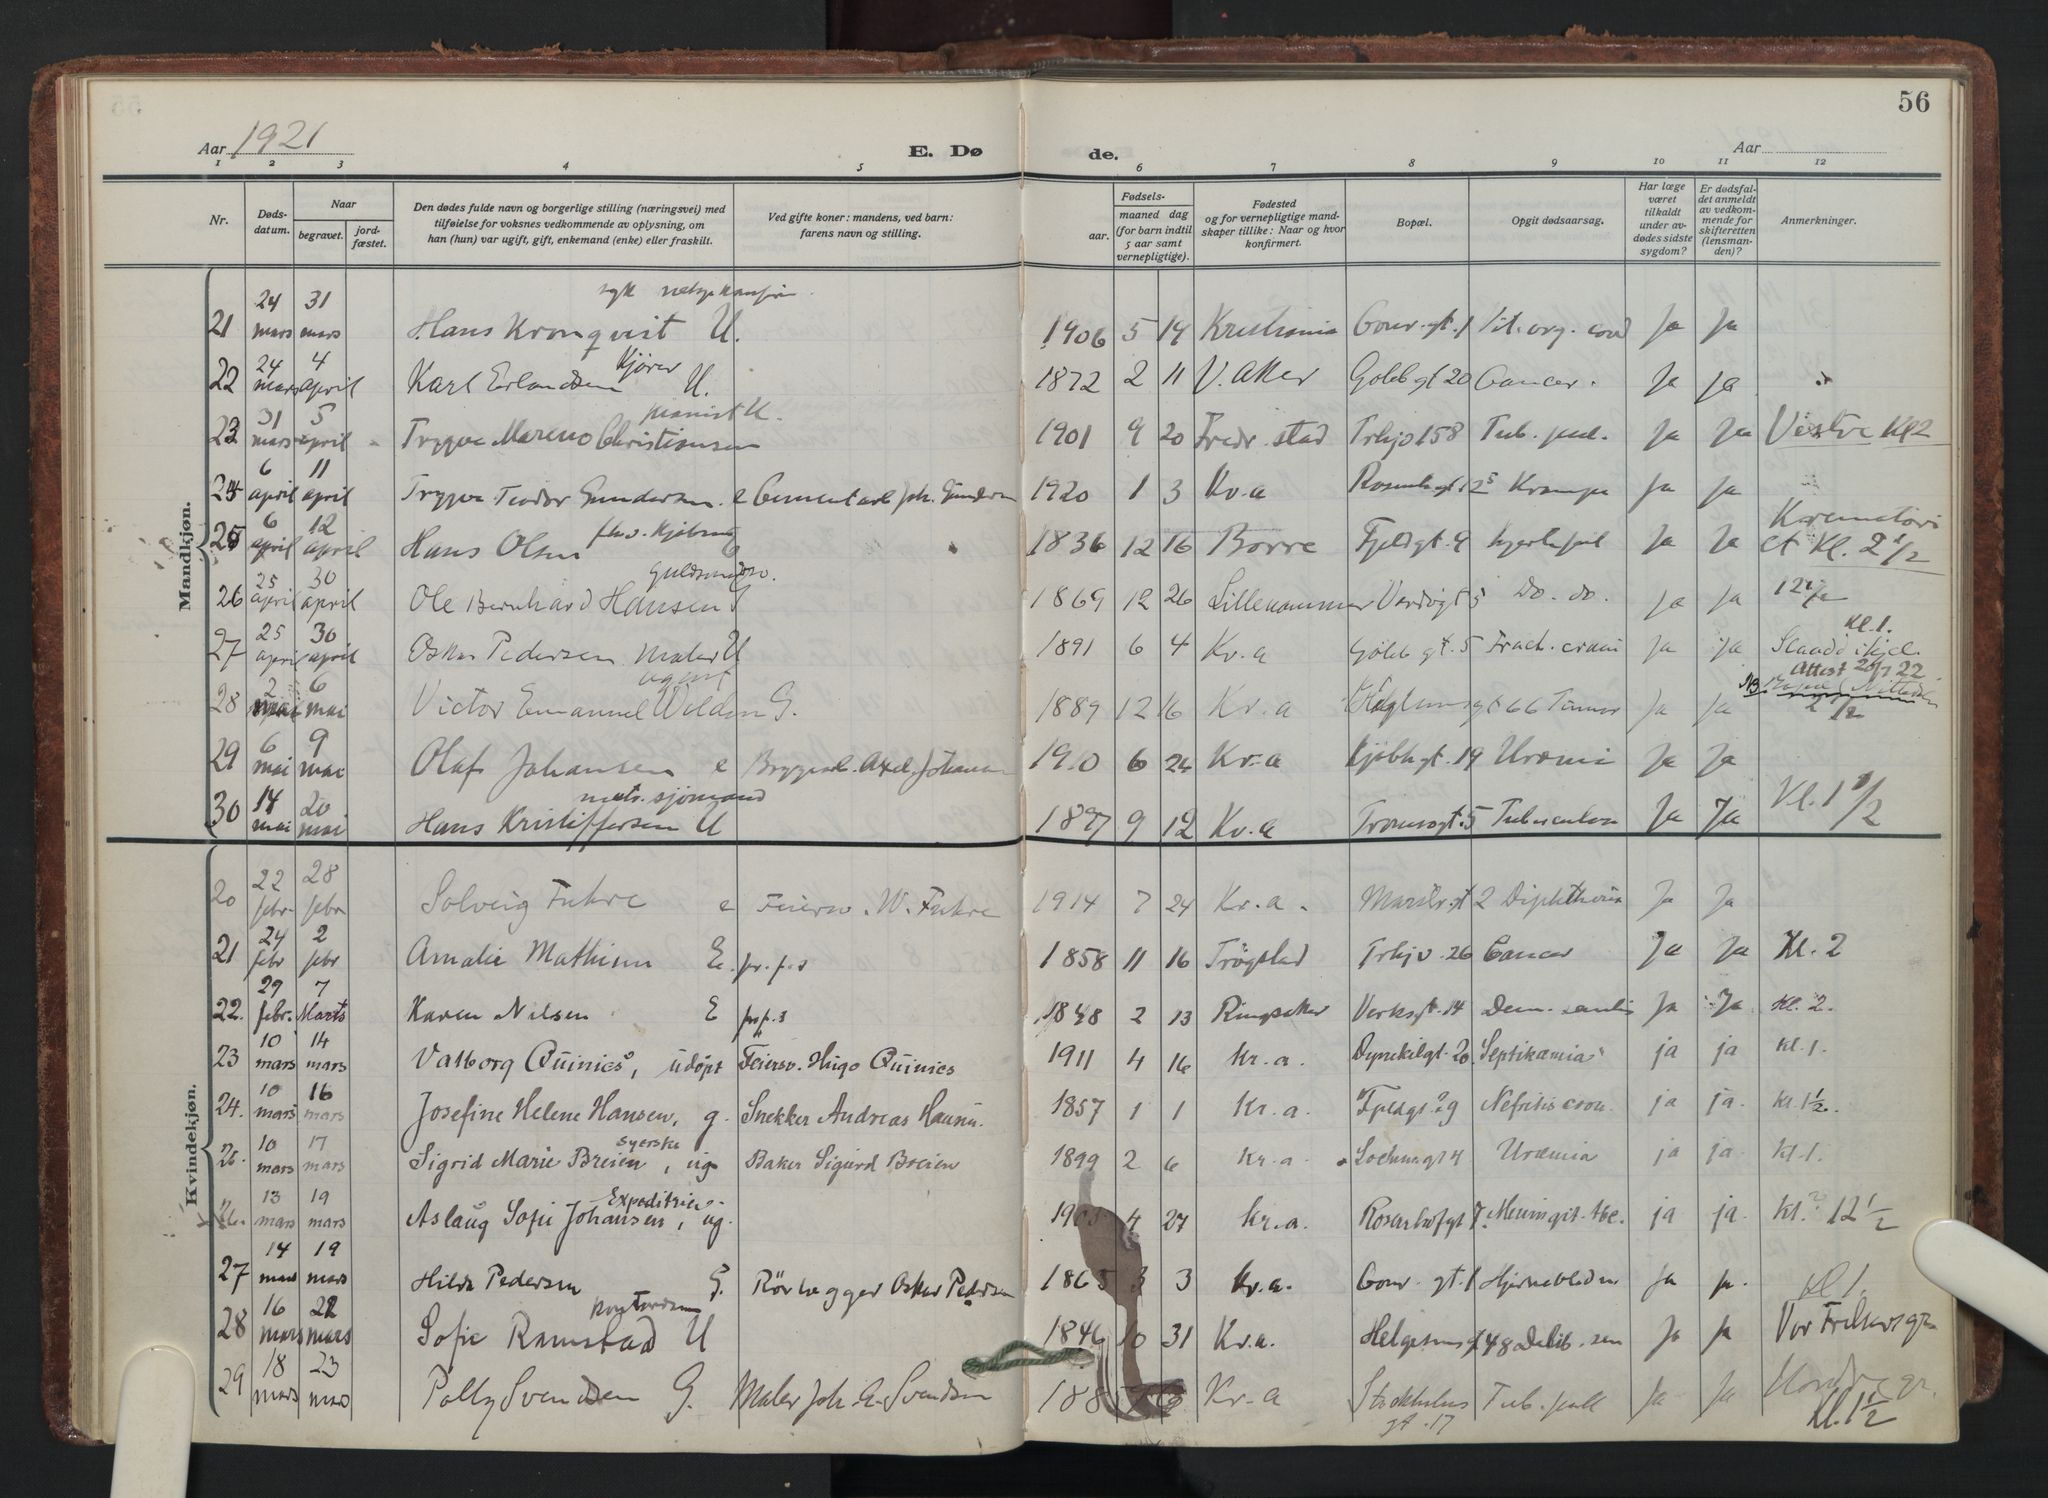 56
Aar 1921
E. Dø de.
Aar
1 2 3 4 5 6 7 8 9 10 11 12
Nr.
Døds-datum.
Naar
begravet.
jord-fæstet.
Den dødes fulde navn og borgerlige stilling (næringsvei) med
tilføielse for voksnes vedkommende av oplysning, om
han (hun) var ugift, gift, enkemand (enke) eller fraskilt.
Ved gifte koner: mandens, ved barn:
farens navn og stilling.
Fødsels-
aar. maaned dag
(for barn indtil
5 aar samt
vernepligtige).
Fødested
og for vernepligtige mand-
skaper tillike: Naar og hvor
konfirmert.
Bopæl.
Opgit dødsaarsag.
Har læge
været
tilkaldt
under av-
dødes sidste
sygdom?
Er dødsfal-
det anmeldt
av vedkom-
mende for
skifteretten
(lensman-
den)?
Anmerkninger.
Mandkjøn.
21 24 mars 31 mars Hans Kronqvist U. 1906 5 14 Kristiania Ja Ja
22 24 mars 4 april Karl Erlandsen Kjører U. 1872 2 11 V. Aker Gøteb gt 20 Cancer. Ja Ja
23 31 mars 5 april Trygve Mareno Christiansen pianist U. 1901 9 20 Fredr. stad Trhjo 158 Tub. pul. Ja Ja Vestre Kl 2
24 6 april 11 april Trygve Teodor Gundersen e Cementarb Joh. Gundersen 1920 1 3 Kr.a Krampe Ja Ja
25 6 april 12 april Hans Olsen fhv. Kjøbm 1836 12 16 Borre Fjeldgt. 4 Ja Ja Krematori et Kl. 2 1/2
26 25 april 30 april Ole Bernhard Hansen G 1869 12 26 Lillehammer 5 Do. do. Ja Ja 12 1/2
27 25 april 30 april Oskar Pedersen Maler U 1891 6 4 Kr.a Gøteb gt. 5 Fract. crani Ja Ja Kl. 1.
28 2 mai 6 mai Victor Emanuel agent G. 1889 12 16 Kr.a 66 Tumor Ja Ja Attest 20/7 22
29 6 mai 9 mai Olaf Johansen e Axel Johansen 1910 6 24 Kr.a Kjøbhgt. 19 Uræmi Ja Ja
30 14 mai 20 mai Hans Kristiffersen matr. sjömand U 1897 9 12 Kr.a Tromsøgt. 5 Tuberculose Ja Ja Kl. 1 1/2
Kvindekjøn.
20 22 febr 28 febr Solveig Fuhre e Feiersv. W. Fuhre 1914 7 24 Kr.a. 2 Diphtheria Ja Ja
21 24 febr 2 febr Amalie Mathisen E. pr. f. s 1858 11 16 Trögstad Trhjv. 26 Cancer Ja Ja Kl. 2
22. 29 febr. 7 Marts Karen Nilsen E pr f. s 1848 2 13 Ringsaker Verksgt. 14 Dem. senilis Ja Ja Kl. 2.
23 10 mars 14 mars Valborg Quinies, udöpt Feiersv. Hugo Quinies 1911 4 16 Kr.a. Dynekilgt. 20. Septikæmia ja ja Kl. 1.
24. 10 mars 16 mars Josefine Helene Hansen, g. Snekker Andreas Hansen. 1857 1 1 Kr.a. Fjeldgt. 9 Nefritis cron. ja ja. Kl. 1 1/2.
25. 10 mars 17 mars Sigrid Marie Breien, syerske ug Baker Sigurd Breien 1899 2 6 Kr.a. 4 Uræmia ja ja. Kl. 1.
26. 13 mars 19 mars Aslaug Sofie Johansen, Expeditrice ug. 4 27 Kr.a. Rosenhofgt 7. Meningit. tbc. ja ja. Kl. 12 1/2
27 14 mars 19 mars Hilda Pedersen G. Rörlegger Oskar Pedersen 1865 3 3 Kr.a. Ja Ja. Kl 1.
28 16 mars 22 mars Sofie Ramstad U 1846 10 31 Kr.a. Helgesensgt 48 Debil. sen Ja Ja Vor Frelsers gr.
29 18 mars 23 mars Polly Svendsen G. Maler Joh. E. Svendsen 188 Kr.a Stockholms gt. 17 Tub. pull Ja Ja Nordre gr. Kl. 1 1/2